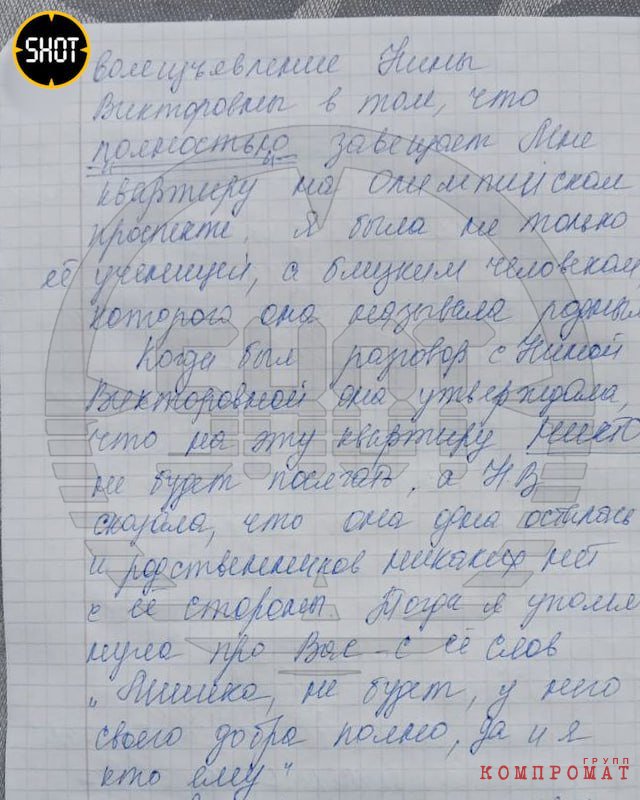 SHOT
волеизъявление Нины
Викторовны в том, что
полностью завещает Мне
квартиру на Олимпийском
проспекте. Я была не только
её ученицей, а близким человеком,
которого она называла родным
Когда был разговор с Ниной
Викторовной она утверждала,
что на эту квартиру никто
не будет посягать, а НВ
сказала, что она одна осталась
и родственников никаких нет
с её стороны. Тогда я упомя
нула про Вас - с её слов
„Мишка, не будет, у него
своего добра полно, да и я
кто ему"
ГРУПП
КОМПРОМАТ